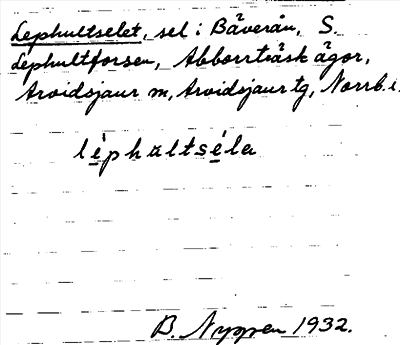 Lephultselet, sel i Bäverån, S.
Lephultforsen, Abborrträsk ägor,
Arvidsjaur m, Arvidsjaur tg, Norrb.l.
léphultséla
B. Nyppen 1932.